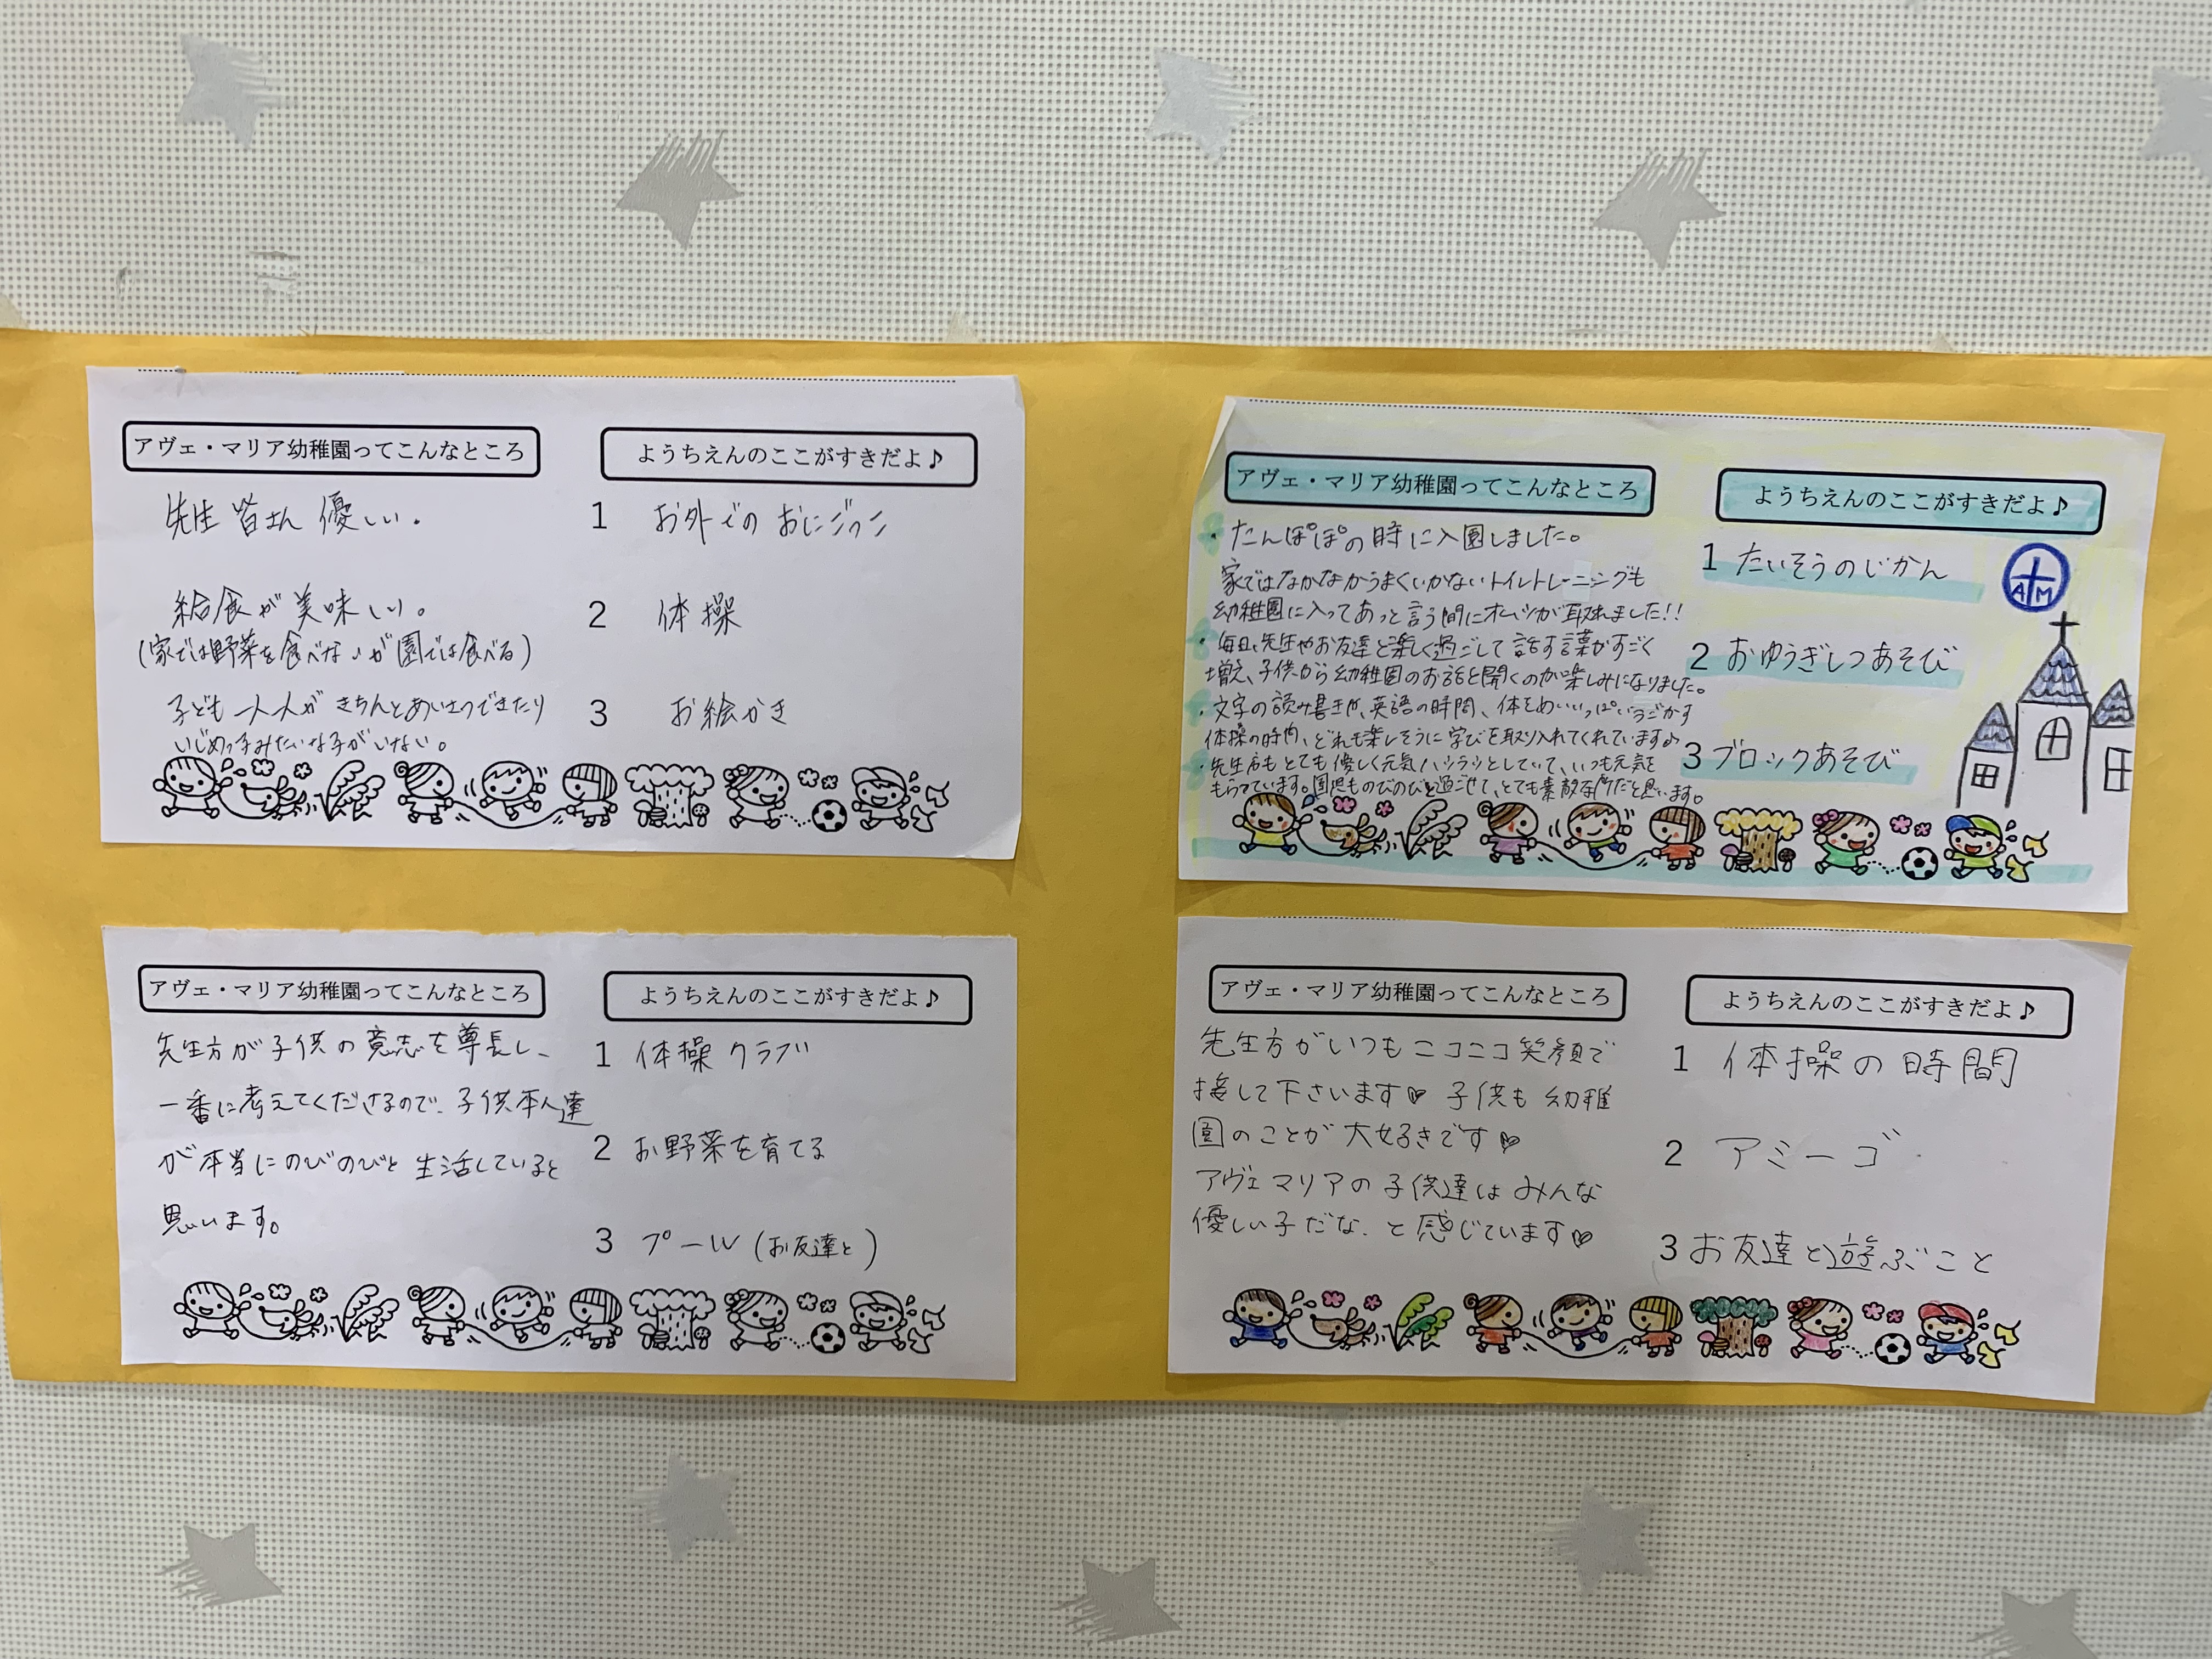 アヴェ・マリア幼稚園ってこんなところ
先生 皆さん 優しい.
給食が美味しい。
(家では野菜を食べないが園では食べる)
子ども一人一人が きちんとあいさつできたり
いじめっ子みたいな子がいない。
ようちえんのここがすきだよ♪
1 お外での おにごっこ
2 体操
3 お絵かき
アヴェ・マリア幼稚園ってこんなところ
・たんぽぽの時に入園しました。
家ではなかなかうまくいかないトイレトレーニングも
幼稚園に入ってあっと言う間にオムツが取れました!!
・毎日、先生やお友達と楽しく過ごして話す言葉がすごく
増え、子供から幼稚園のお話を聞くのが楽しみになりました。
・文字の読み書きや、英語の時間、体をめいいっぱいうごかす
体操の時間、どれも楽しそうに学びを取り入れてくれています♪
・先生方もとても優しく元気ハツラツとしていて、いつも元気を
もらっています。園児ものびのびと過ごせて、とても素敵な所だと思います。
ようちえんのここがすきだよ♪
1 たいそうのじかん
2 おゆうぎしつあそび
3 ブロックあそび
AM
アヴェ・マリア幼稚園ってこんなところ
先生方が子供の意志を尊長し、
一番に考えてくださるので、子供本人達
が本当にのびのびと生活していると
思います。
ようちえんのここがすきだよ♪
1 体操クラブ
2 お野菜を育てる
3 プール(お友達と)
アヴェ・マリア幼稚園ってこんなところ
先生方がいつもニコニコ笑顔で
接して下さいます♡ 子供も幼稚
園のことが大好きです♡
アヴェマリアの子供達はみんな
優しい子だな.と感じています♡
ようちえんのここがすきだよ♪
1 体操の時間
2 アミーゴ
3 お友達と遊ぶこと